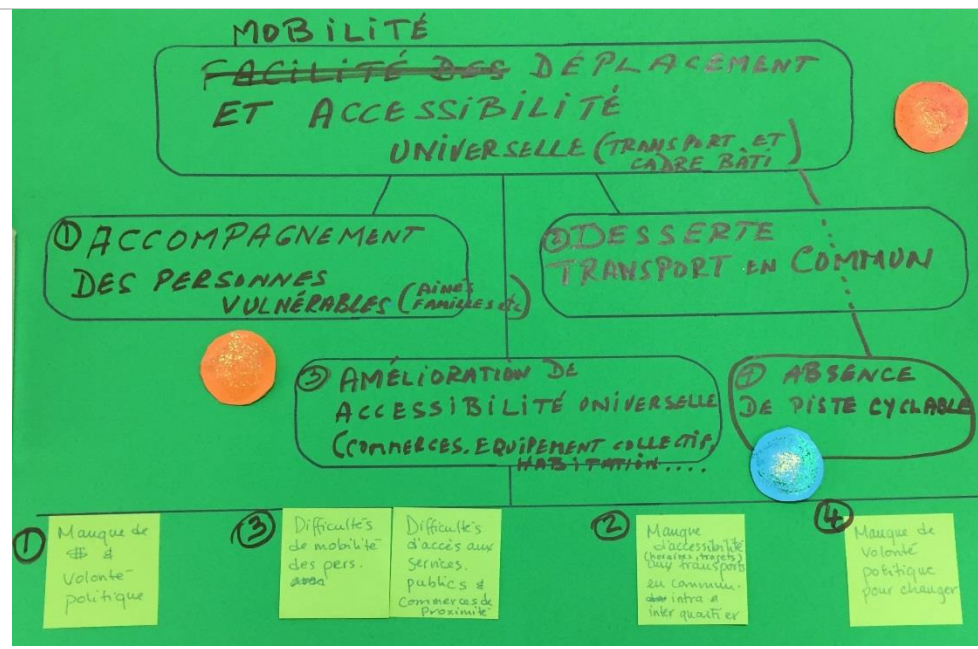 MOBILITÉ
FACILITÉ DES DÉPLACEMENT
ET ACCESSIBILITÉ
UNIVERSELLE (TRANSPORT ET
CADRE BÂTI)
① ACCOMPAGNEMENT
DES PERSONNES
VULNÉRABLES (AINÉS
FAMILLES etc)
② DESSERTE
TRANSPORT EN COMMUN
③ AMÉLIORATION DE
ACCESSIBILITÉ UNIVERSELLE
(COMMERCES, EQUIPEMENT COLLECTIF,
HABITATION....
④ ABSENCE
DE PISTE CYCLABLE
①
Manque de
$ &
Volonté
politique
③
Difficultés
de mobilité
des pers.
Difficultés
d'accès aux
services.
publics &
Commerces de
Proximité
②
Manque
d'accessibilité
(horaires, trajets)
aux transports
en commun.
intra &
inter quartier
④
Manque de
volonté
politique
pour changer